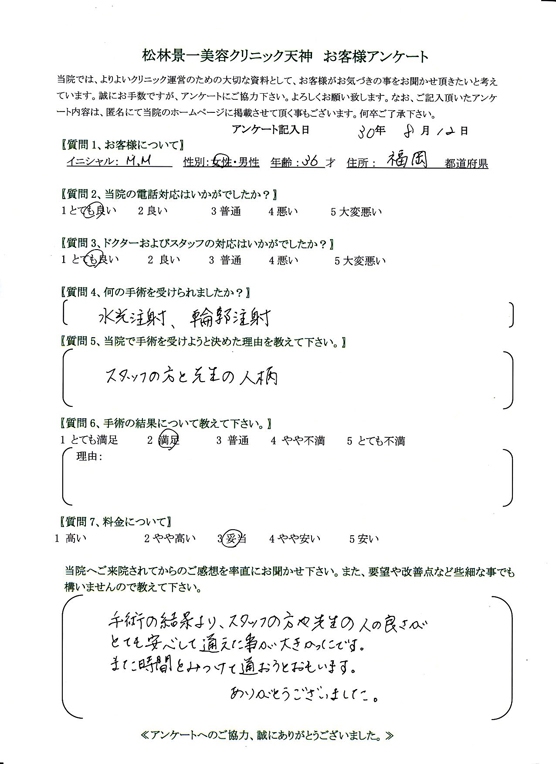 松林景一美容クリニック天神 お客様アンケート
当院では、よりよいクリニック運営のための大切な資料として、お客様がお気づきの事をお聞かせ頂きたいと考え
ています。誠にお手数ですが、アンケートにご協力下さい。よろしくお願い致します。なお、ご記入頂いたアンケ
ート内容は、匿名にて当院のホームページに掲載させて頂く事もございます。何卒ご了承下さい。
アンケート記入日 30年 8月 12日
〖質問1、お客様について〗
イニシャル: M.M 性別:女性・男性 年齢:36才 住所: 福岡 都道府県
〖質問2、当院の電話対応はいかがでしたか?〗
1とても良い 2良い 3普通 4悪い 5大変悪い
〖質問3、ドクターおよびスタッフの対応はいかがでしたか?〗
1とても良い 2良い 3普通 4悪い 5大変悪い
〖質問4、何の手術を受けられましたか?〗
水光注射、輪郭注射
〖質問5、当院で手術を受けようと決めた理由を教えて下さい。〗
スタッフの方と先生の人柄
〖質問6、手術の結果について教えて下さい。〗
1とても満足 2満足 3普通 4やや不満 5とても不満
理由:
〖質問7、料金について〗
1高い 2やや高い 3妥当 4やや安い 5安い
当院へご来院されてからのご感想を率直にお聞かせ下さい。また、要望や改善点など些細な事でも
構いませんので教えて下さい。
手術の結果より、スタッフの方や先生の人の良さが
とても安心して通えた事が大きかったです。
また時間をみつけて通おうとおもいます。
ありがとうございました。
≪アンケートへのご協力、誠にありがとうございました。≫